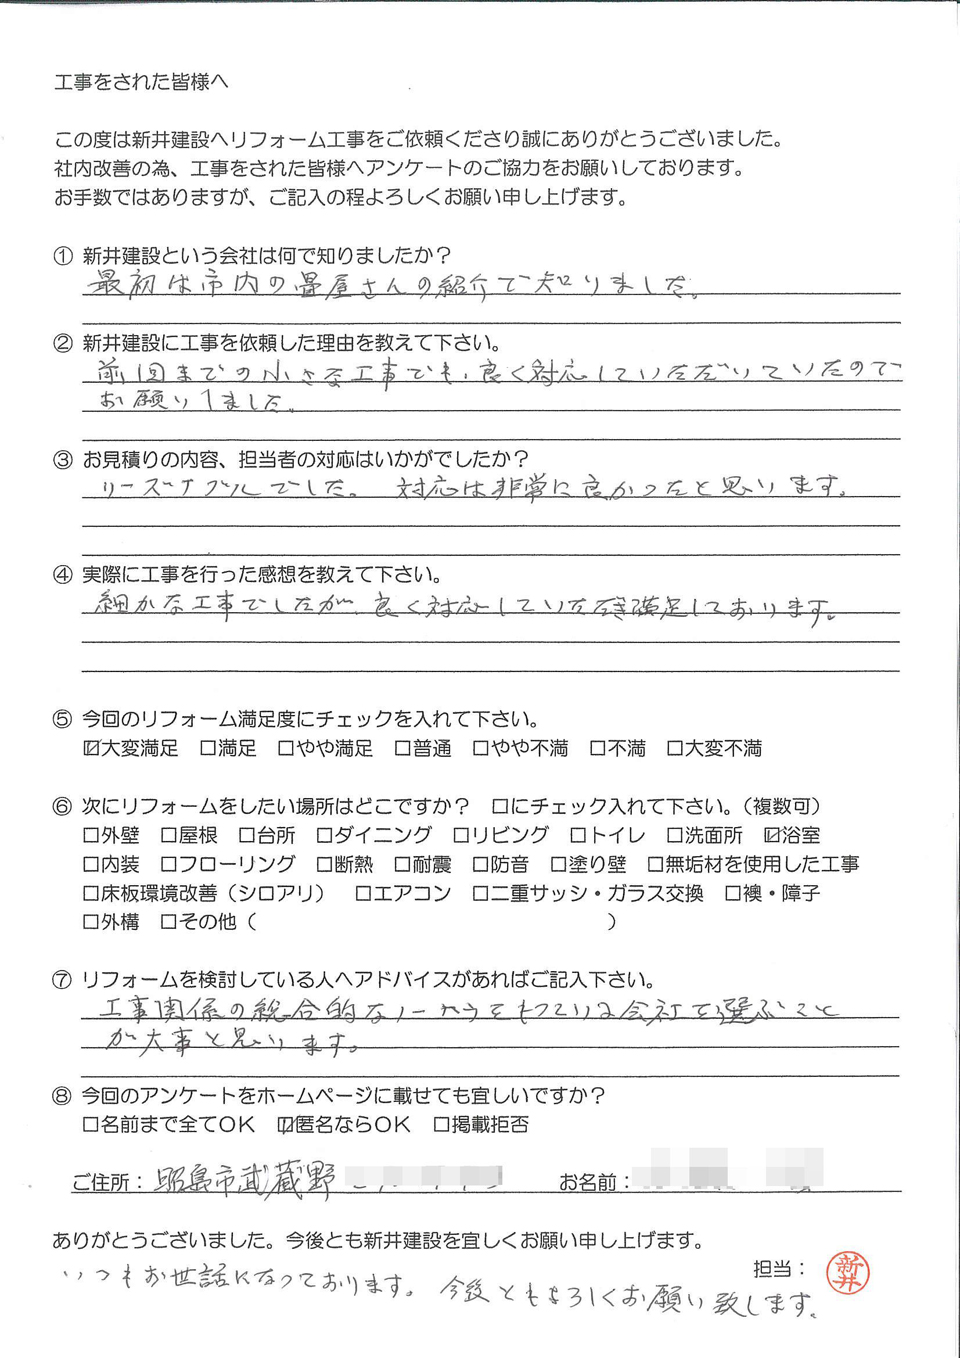 工事をされた皆様へ
この度は新井建設へリフォーム工事をご依頼くださり誠にありがとうございました。
社内改善の為、工事をされた皆様へアンケートのご協力をお願いしております。
お手数ではありますが、ご記入の程よろしくお願い申し上げます。
① 新井建設という会社は何で知りましたか？
最初は市内の畳屋さんの紹介で知りました。
② 新井建設に工事を依頼した理由を教えて下さい。
前回までの小さな工事でも、良く対応していただいていたので
お願いしました。
③ お見積りの内容、担当者の対応はいかがでしたか？
リーズナブルでした。 対応は非常に良かったと思います。
④ 実際に工事を行った感想を教えて下さい。
細かな工事でしたが、良く対応していただき満足しております。
⑤ 今回のリフォーム満足度にチェックを入れて下さい。
☑大変満足 □満足 □やや満足 □普通 □やや不満 □不満 □大変不満
⑥ 次にリフォームをしたい場所はどこですか？ □にチェック入れて下さい。（複数可）
□外壁 □屋根 □台所 □ダイニング □リビング □トイレ □洗面所 ☑浴室
□内装 □フローリング □断熱 □耐震 □防音 □塗り壁 □無垢材を使用した工事
□床板環境改善（シロアリ） □エアコン □二重サッシ・ガラス交換 □襖・障子
□外構 □その他（ ）
⑦ リフォームを検討している人へアドバイスがあればご記入下さい。
工事関係の総合的なノーハウをもっている会社を選ぶこと
が大事と思います。
⑧ 今回のアンケートをホームページに載せても宜しいですか？
□名前まで全てＯＫ ☑匿名ならＯＫ □掲載拒否
ご住所： 昭島市武蔵野 お名前：
ありがとうございました。今後とも新井建設を宜しくお願い申し上げます。
担当： 新井
いつもお世話になっております。今後ともよろしくお願い致します。